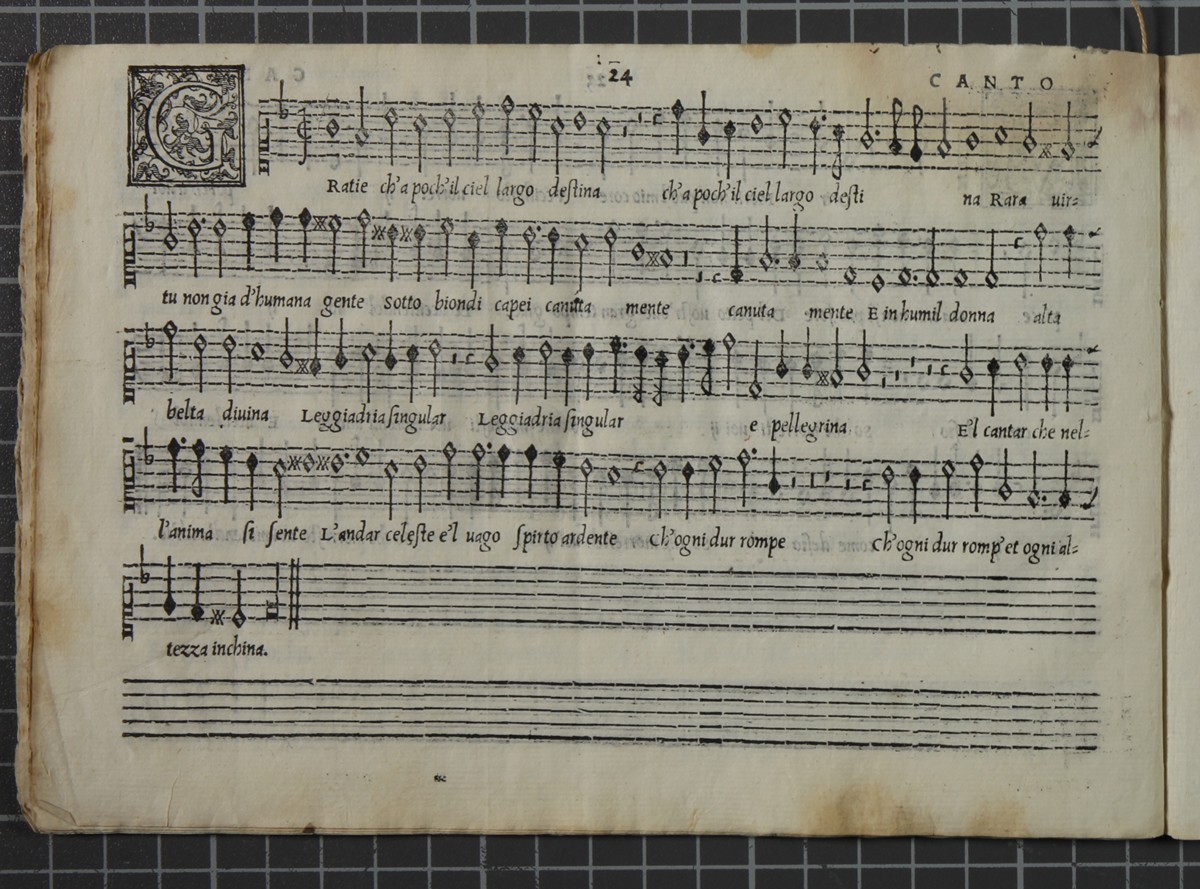 24 CANTO
G
Ratie ch'a poch'il ciel largo deſtina ch'a poch'il ciel largo deſti na Rara uir-
tu non gia d'humana gente sotto biondi capei canuta mente canuta mente E in humil donna alta
belta diuina Leggiadria ſingular Leggiadria ſingular e pellegrina E'l cantar che nel-
l'anima ſi ſente L'andar celeſte e'l uago ſpirto ardente Ch'ogni dur rompe Ch'ogni dur romp'et ogni al-
tezza inchina.